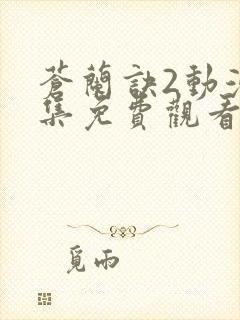 蒼蘭訣2動
集免費觀看
覓雨